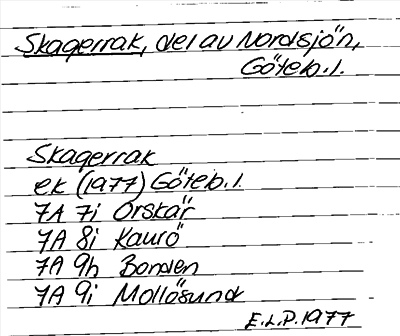 Skagerrak, del av Nordsjön,
Göteb. l.
Skagerrak
ek (1977) Göteb. l.
7A 7i Orskär
7A 8i Kaurö
7A 9h Bonden
7A 9i Mollösund
E.L.P. 1977